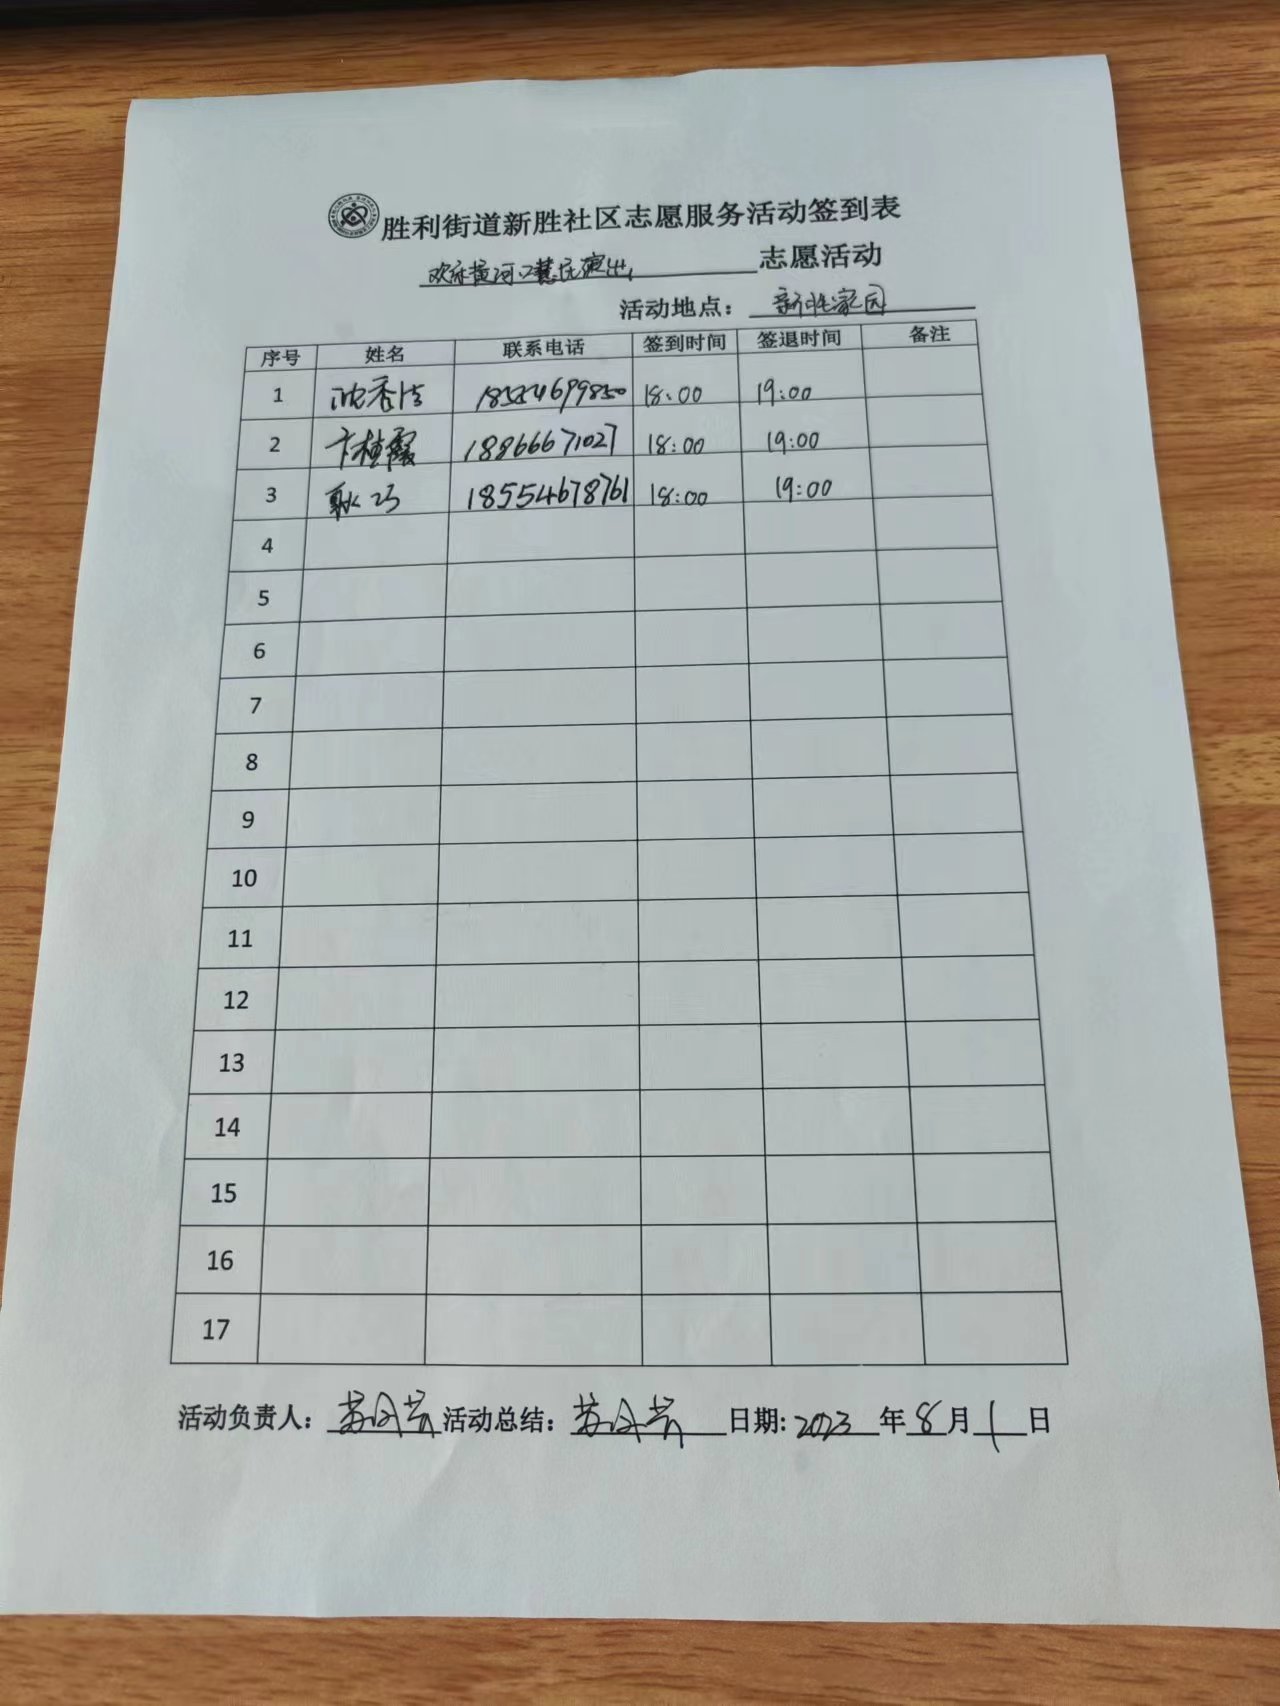 胜利街道新胜社区志愿服务活动签到表
欢乐黄河口惠民演出 志愿活动
活动地点： 新胜家园
序号 姓名 联系电话 签到时间 签退时间 备注
1 香洁 18554699850 18:00 19:00
2 卞桂霞 18866671027 18:00 19:00
3 耿巧 18554678761 18:00 19:00
4
5
6
7
8
9
10
11
12
13
14
15
16
17
活动负责人： 苏丹芳 活动总结： 苏丹芳 日期: 2023 年 8 月 1 日